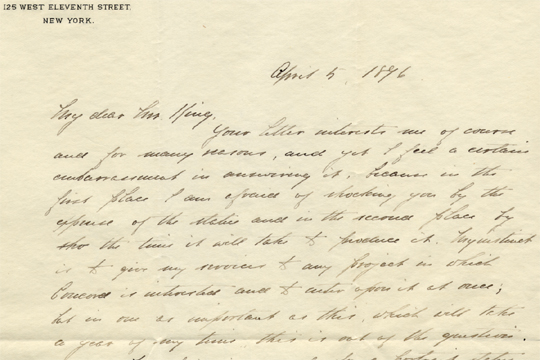 125 WEST ELEVENTH STREET.
NEW YORK.
April 5, 1896
My dear Mr. King,
Your letter interests me of course
and for many reasons, and yet I feel a certain
embarrassment in answering it; because in the
first place I am afraid of shocking you by the
expense of the statue and in the second place by
the time it will take to produce it. My instinct
is to give my services to any project in which
Concord is interested and to enter upon it at once;
but in one as important as this, which will take
a year of my time this is out of the question.